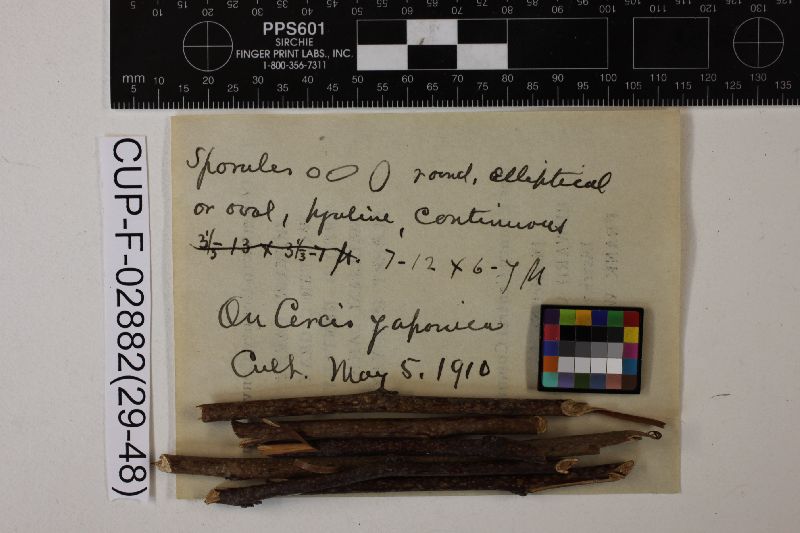 PPS601
SIRCHIE
FINGER PRINT LABS., INC.
1-800-356-7311
mm 5 10 15 20 25 30 35 40 45 50 55 60 65 70 75 80 85 90 95 100 105 110 115 120 125 130 135
CUP-F-02882(29-48)
Sporules round, elliptical
or oval, hyaline, continuous
3⅓-13 x 3⅓-7 μ. 7-12 x 6-7 μ
On Cercis japonica
Cult. May 5. 1910